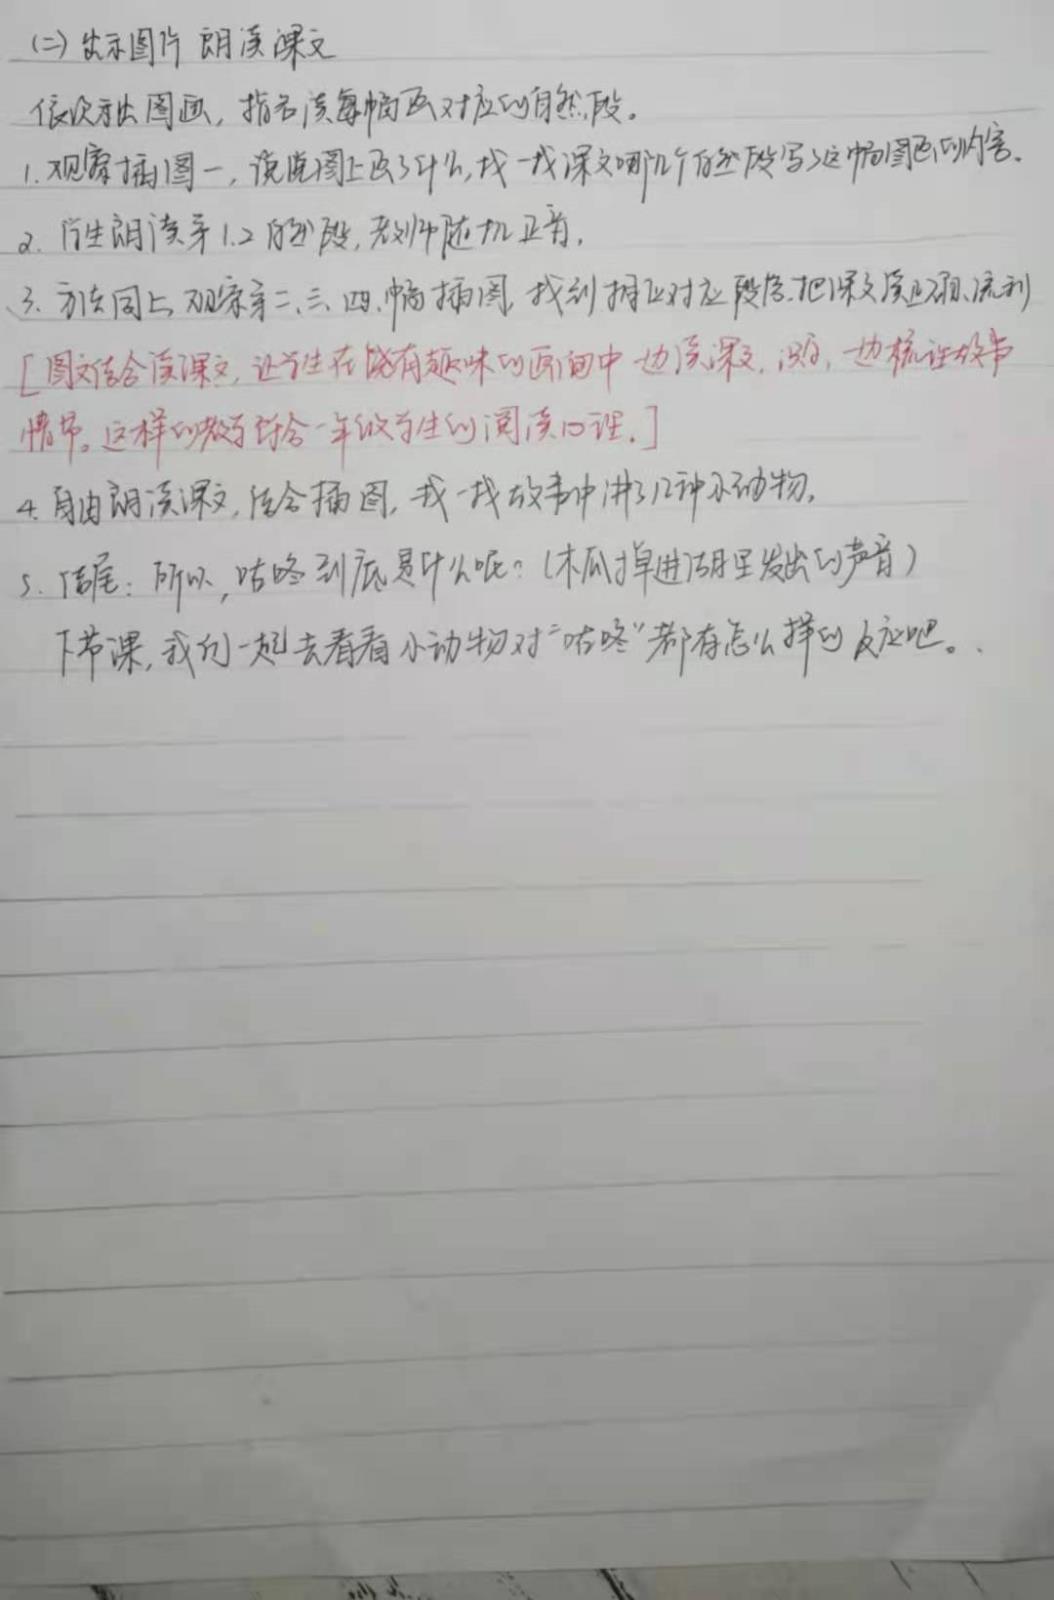 (二)出示图片 朗读课文
依次示出图画，指名读每幅画对应的自然段。
1.观察插图一，说说图上画了什么,找一找课文哪几个自然段写了这幅图画的内容.
2.学生朗读第1.2自然段,老师随机正音.
3.方法同上,观察第二、三、四.幅插图,找到相应对应段落.把课文读正确、流利
[图文结合读课文,让学生在饶有趣味的画面中边读课文,识字,边梳理故事
情节。这样的教学符合一年级学生的阅读心理.]
4.自由朗读课文,结合插图,找一找故事中讲了几种小动物.
5.结尾:所以,咕咚到底是什么呢?(木瓜掉进湖里发出的声音)
下节课,我们一起去看看小动物对“咕咚”都有怎么样的反应吧。